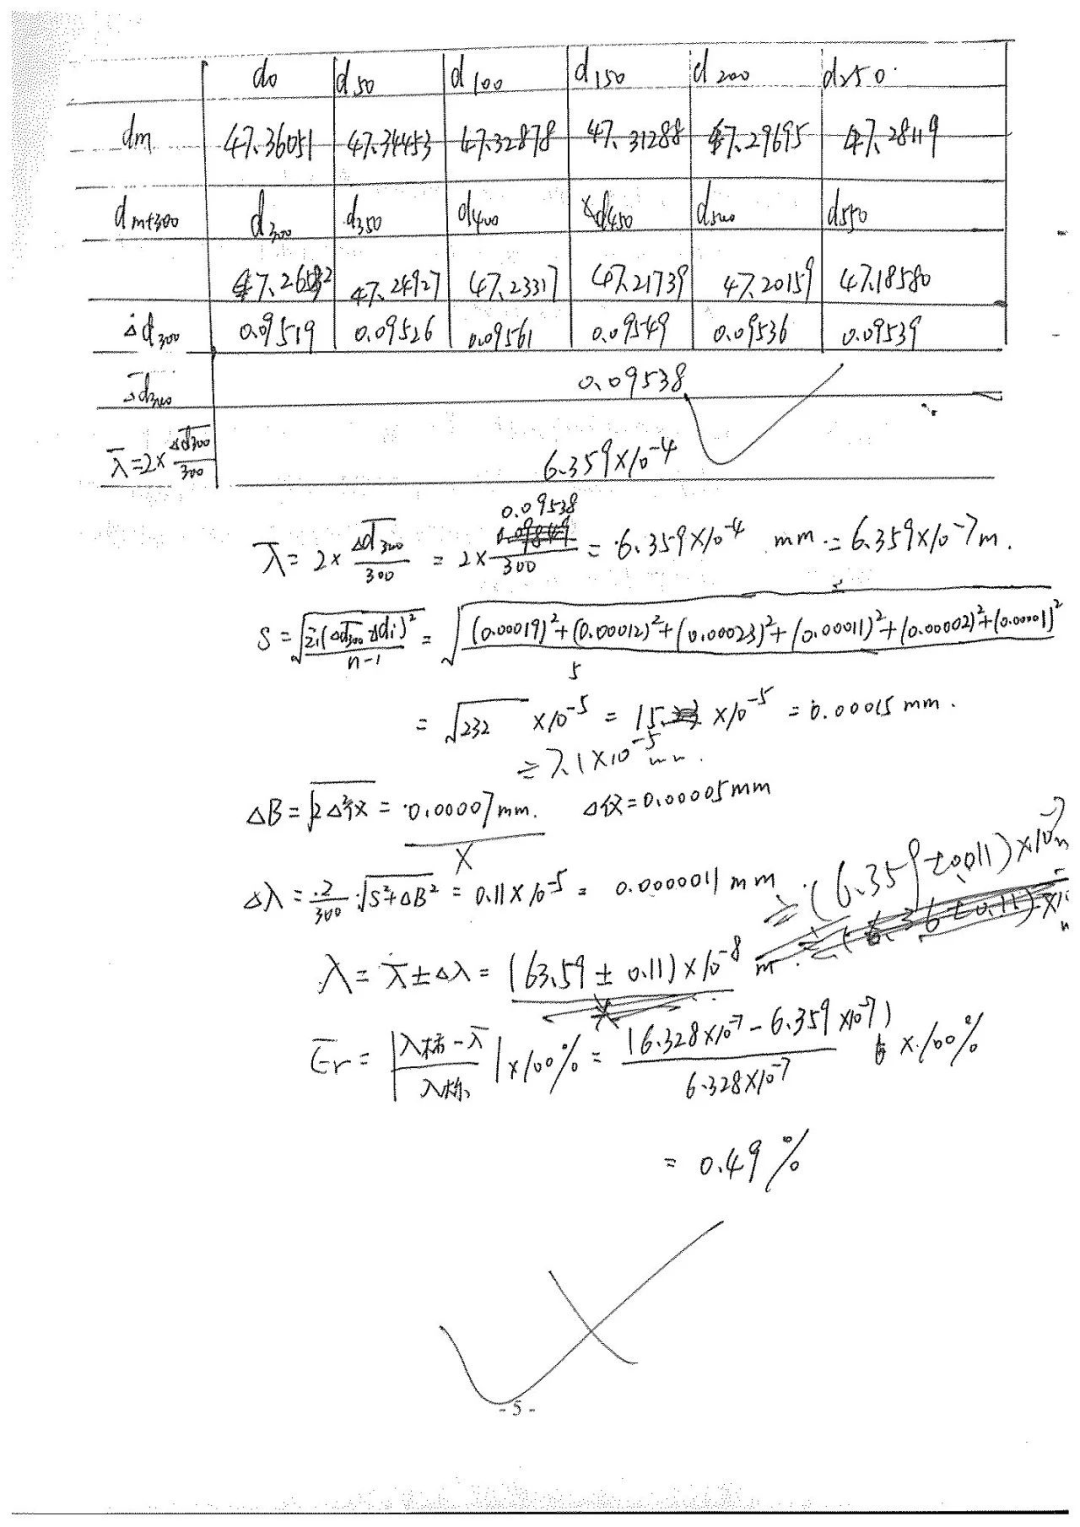 d₀ d₅₀ d₁₀₀ d₁₅₀ d₂₀₀ d₂₅₀
dm 47.36051 47.34453 47.32878 47.31288 47.29695 47.28119
dm+300 d₃₀₀ d₃₅₀ d₄₀₀ d₄₅₀ d₅₀₀ d₅₅₀
47.26532 47.24927 47.23317 47.21739 47.20159 47.18580
Δd₃₀₀ 0.09519 0.09526 0.09561 0.09549 0.09536 0.09539
Δd₃₀₀ 0.09538
λ̄=2×Δd₃₀₀/300 6.359×10⁻⁴
λ̄ = 2×Δd₃₀₀/300 = 2×0.09538/300 = 6.359×10⁻⁴ mm = 6.359×10⁻⁷m.
S = √(Σ(Δd₃₀₀-Δdi)²/(n-1)) = √(((0.00019)²+(0.00012)²+(0.00023)²+(0.00011)²+(0.00002)²+(0.00001)²)/5)
= √232 ×10⁻⁵ = 15 ×10⁻⁵ = 0.00015 mm.
= 7.1×10⁻⁵ mm.
ΔB = √(2Δ²仪) = 0.00007mm. Δ仪=0.00005mm
Δλ = 2/300·√(S²+ΔB²) = 0.11×10⁻⁵ = 0.0000011 mm = (6.359±0.011)×10⁻⁷m
λ = λ̄±Δλ = (63.59±0.11)×10⁻⁸ m
Er = |(λ标-λ̄)/λ标|×100% = |6.328×10⁻⁷-6.359×10⁻⁷|/6.328×10⁻⁷ ×100%
= 0.49%
- 5 -